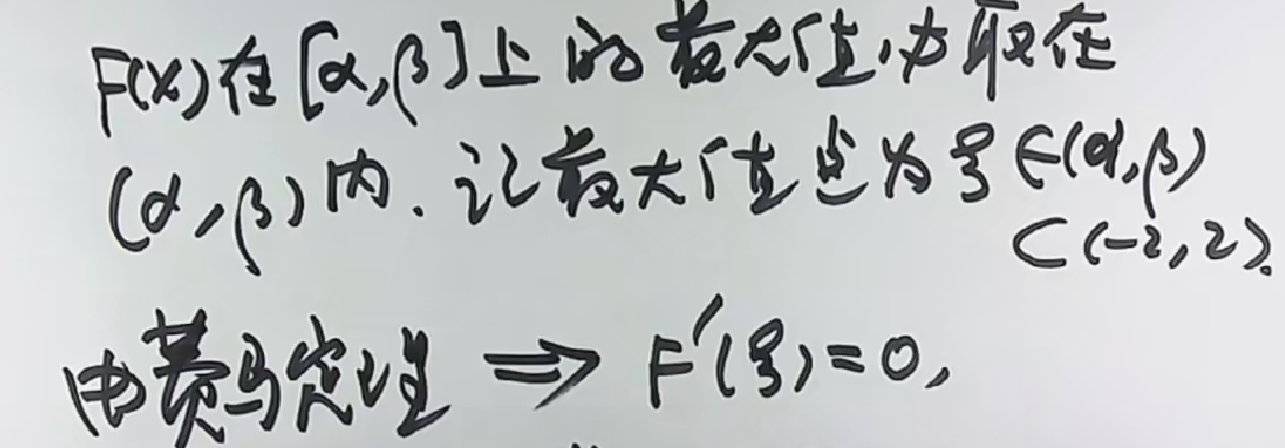 F(x)在[α,β]上的最大值必取在
(α,β)内.记最大值点为ξ∈(α,β)
⊂(-2,2).
由费马定理 ⇒ F'(ξ)=0,